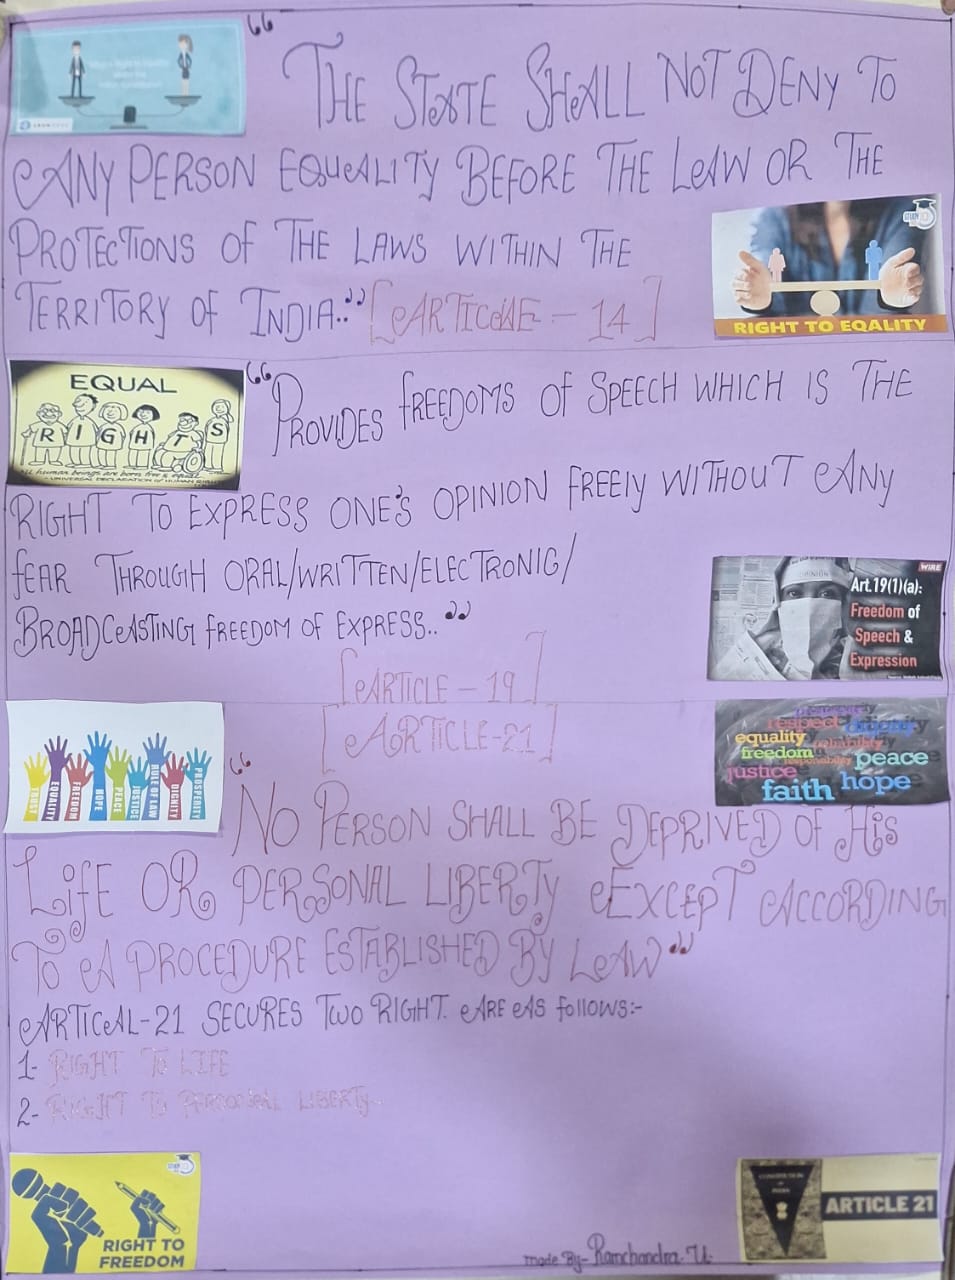 “ THE STATE SHALL NOT DENY TO
ANY PERSON EQUALITY BEFORE THE LAW OR THE
PROTECTIONS OF THE LAWS WITHIN THE
TERRITORY OF INDIA..” [ARTICAE - 14]
STUDY IQ
RIGHT TO EQALITY
EQUAL
RIGHTS
all human beings are born free & equal
- UNIVERSAL DECLARATION OF HUMAN RIGHTS
“ PROVIDES FREEDOMS OF SPEECH WHICH IS THE
RIGHT TO EXPRESS ONE'S OPINION FREELY WITHOUT ANY
FEAR THROUGH ORAL/WRITTEN/ELECTRONIC/
BROADCASTING FREEDOM OF EXPRESS..”
[ARTICLE - 19]
WIRE
OPINION
Art.19(1)(a):
Freedom of
Speech &
Expression
[ARTICLE-21]
TRUST
EQUALITY
FREEDOM
HOPE
PEACE
JUSTICE
RULE OF LAW
DIGNITY
PROSPERITY
respect dignity
equality
freedom
responsibility
peace
justice
faith hope
“ NO PERSON SHALL BE DEPRIVED OF HIS
LIFE OR PERSONAL LIBERTY EXCEPT ACCORDING
TO A PROCEDURE ESTABLISHED BY LAW”
ARTICAL-21 SECURES TWO RIGHT. ARE AS FOLLOWS:-
1- RIGHT TO LIFE
2- RIGHT TO PERSONAL LIBERTY-
STUDY IQ
RIGHT TO
FREEDOM
CONSTITUTION
OF
INDIA
ARTICLE 21
made By- Ramchandra. U.